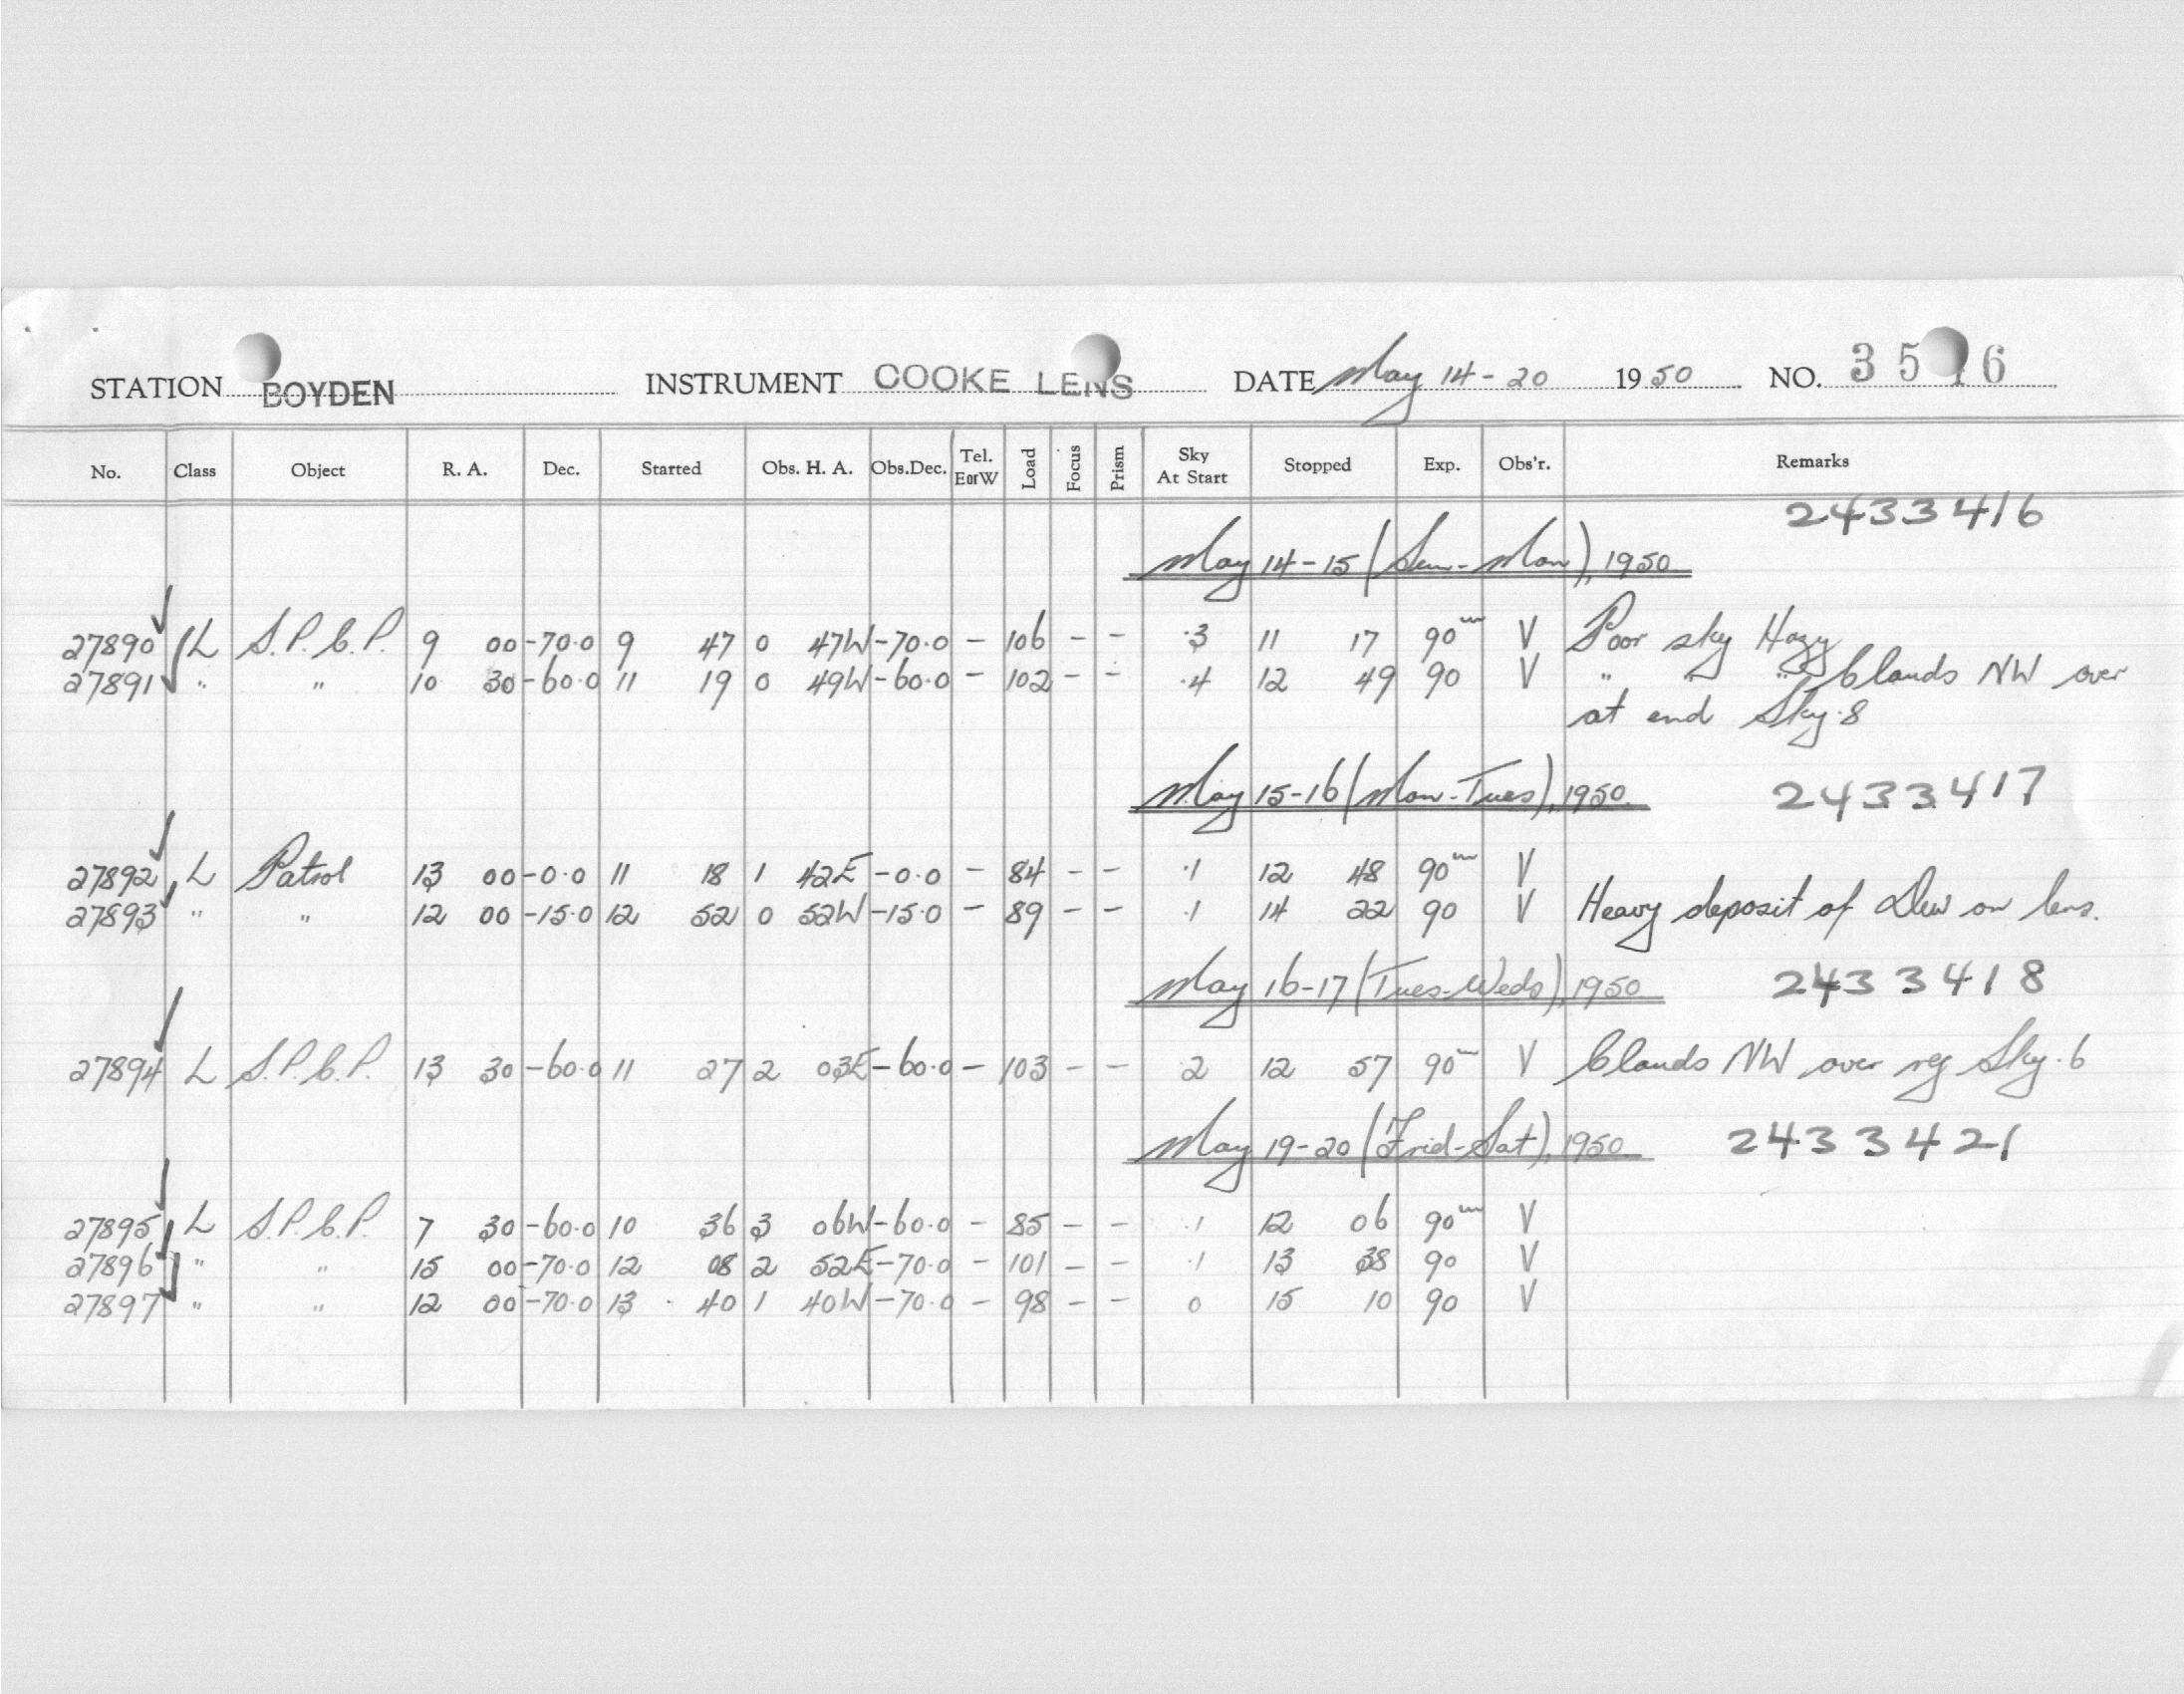 STATION BOYDEN INSTRUMENT COOKE LENS DATE May 14-20 1950 NO. 35 16
No. Class Object R. A. Dec. Started Obs. H. A. Obs.Dec. Tel. E or W Load Focus Prism Sky At Start Stopped Exp. Obs'r. Remarks
2433416
May 14-15 (Sun-Mon), 1950
27890 L S.P.C.P. 9 00 -70.0 9 47 0 47W -70.0 - 106 - - .3 11 17 90m V Poor sky Hazy
27891 " " 10 30 -60.0 11 19 0 49W -60.0 - 102 - - .4 12 49 90 V " " " Clouds NW over
at end Sky .8
May 15-16 (Mon-Tues), 1950 2433417
27892 L Patrol 13 00 -0.0 11 18 1 42E -0.0 - 84 - - .1 12 48 90m V
27893 " " 12 00 -15.0 12 52 0 52W -15.0 - 89 - - .1 14 22 90 V Heavy deposit of Dew on lens.
May 16-17 (Tues-Weds), 1950 2433418
27894 L S.P.C.P. 13 30 -60.0 11 27 2 03E -60.0 - 103 - - .2 12 57 90m V Clouds NW over reg Sky .6
May 19-20 (Frid-Sat), 1950 2433421
27895 L S.P.C.P. 7 30 -60.0 10 36 3 06W -60.0 - 85 - - .1 12 06 90m V
27896 " " 15 00 -70.0 12 08 2 52E -70.0 - 101 - - .1 13 38 90 V
27897 " " 12 00 -70.0 13 40 1 40W -70.0 - 98 - - 0 15 10 90 V